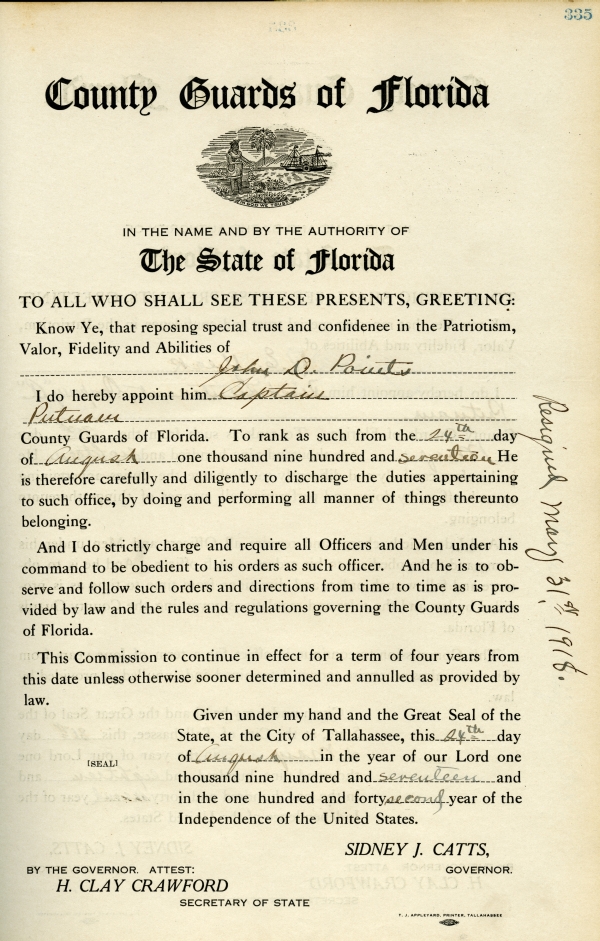 335
County Guards of Florida
IN GOD WE TRUST
IN THE NAME AND BY THE AUTHORITY OF
The State of Florida
TO ALL WHO SHALL SEE THESE PRESENTS, GREETING:
Know Ye, that reposing special trust and confidenee in the Patriotism,
Valor, Fidelity and Abilities of
John D. Points
I do hereby appoint him Captain
Putnam
County Guards of Florida. To rank as such from the 24th day
of August one thousand nine hundred and seventeen He
is therefore carefully and diligently to discharge the duties appertaining
to such office, by doing and performing all manner of things thereunto
belonging.
And I do strictly charge and require all Officers and Men under his
command to be obedient to his orders as such officer. And he is to ob-
serve and follow such orders and directions from time to time as is pro-
vided by law and the rules and regulations governing the County Guards
of Florida.
This Commission to continue in effect for a term of four years from
this date unless otherwise sooner determined and annulled as provided by
law.
Given under my hand and the Great Seal of the
State, at the City of Tallahassee, this 24th day
of August in the year of our Lord one
[SEAL]
thousand nine hundred and seventeen and
in the one hundred and forty second year of the
Independence of the United States.
SIDNEY J. CATTS,
BY THE GOVERNOR. ATTEST:
GOVERNOR.
H. CLAY CRAWFORD
SECRETARY OF STATE
T. J. APPLEYARD, PRINTER, TALLAHASSEE
Resigned May 31st 1918.